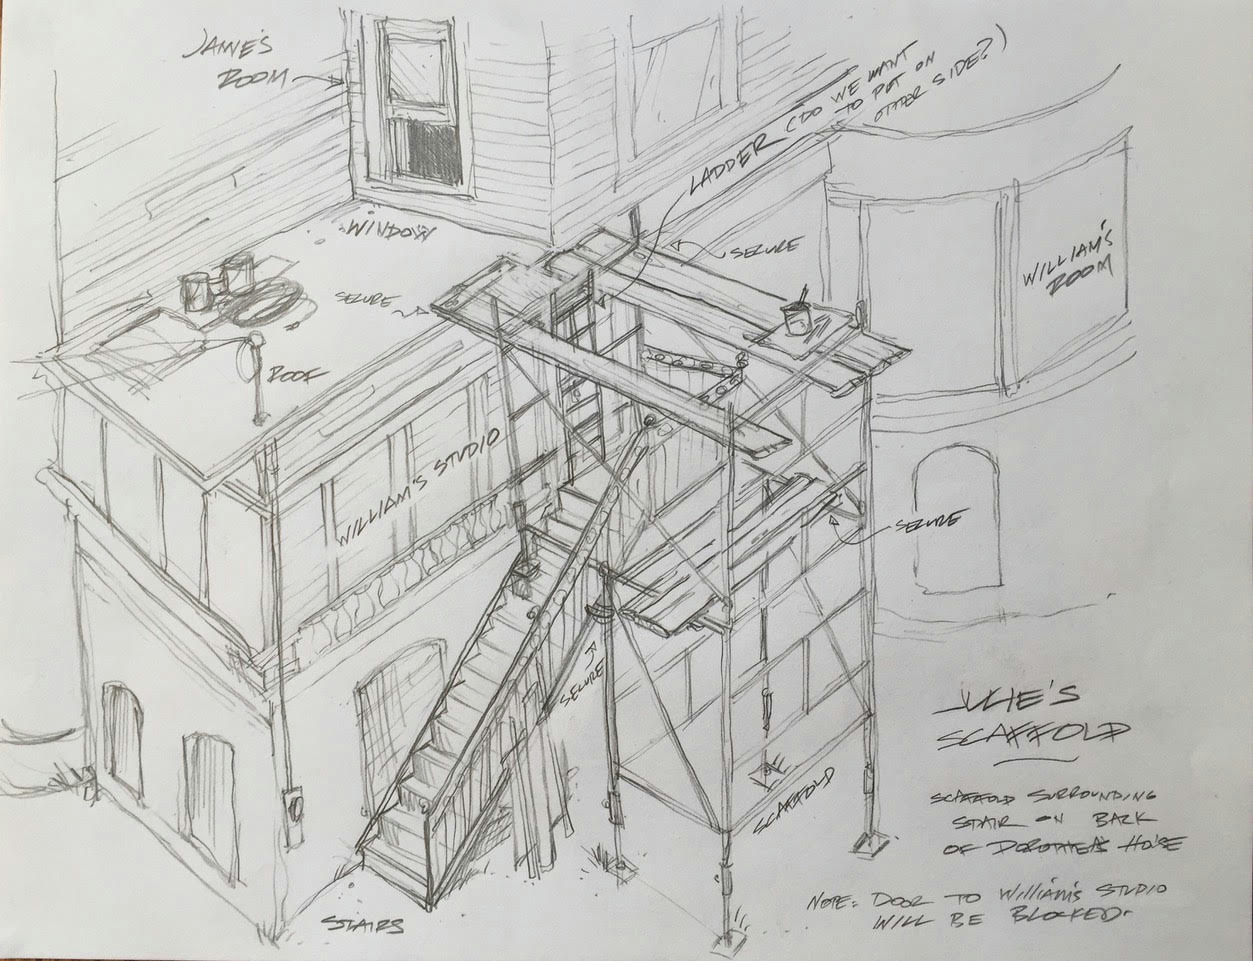 JAMIE'S
ROOM
WINDOW
LADDER (DO WE WANT
TO PUT ON
OTHER SIDE?)
SECURE
SECURE
WILLIAM'S
ROOM
ROOF
WILLIAM'S STUDIO
SECURE
SECURE
SCAFFOLD
STAIRS
JULIE'S
SCAFFOLD
SCAFFOLD SURROUNDING
STAIR ON BACK
OF DOROTHEA'S HOUSE
NOTE: DOOR TO WILLIAM'S STUDIO
WILL BE BLOCKED.